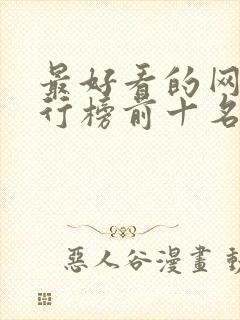 最好看的网
行榜前十名
惡人谷漫畫